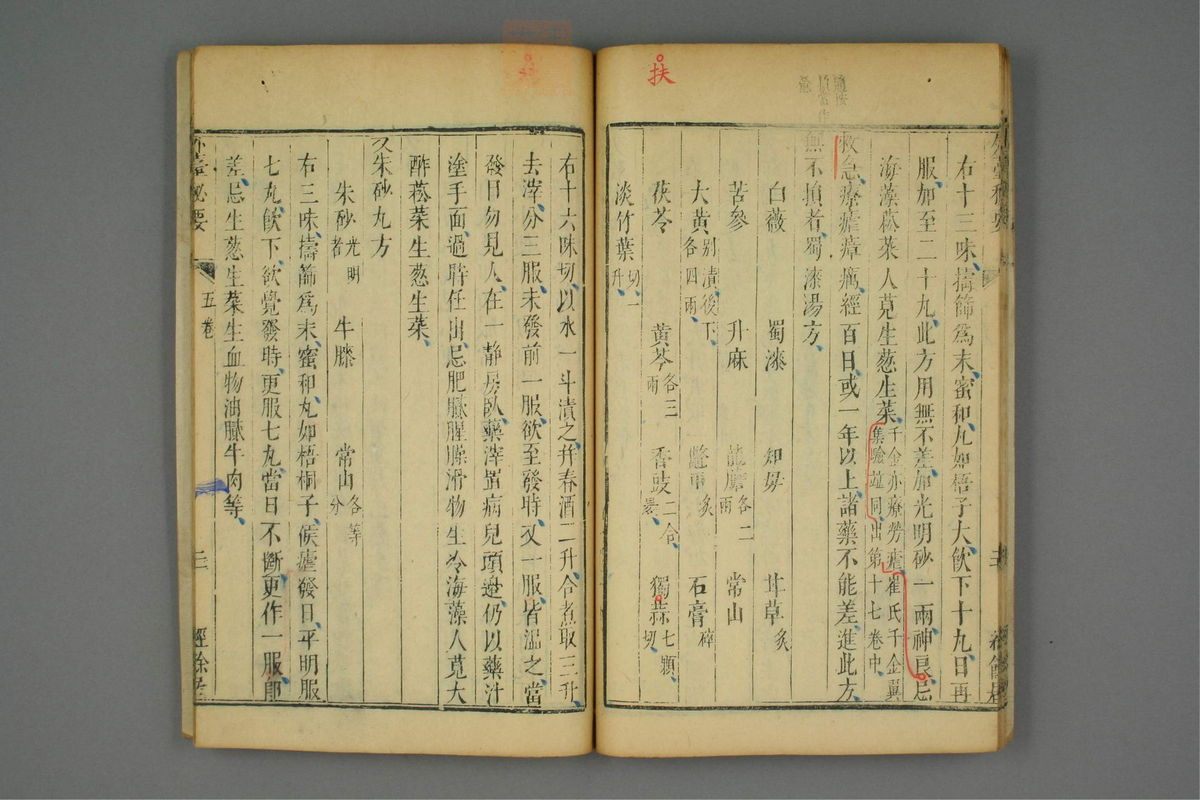 扶
右十三味、擣篩爲末、蜜和、丸如梧子大、飲下十丸、日再
服、加至二十丸、此方用無不差、加光明砂一兩神良、忌
海藻菘菜人莧生葱生菜、千金亦療勞瘧、崔氏千金翼
集驗並同、出第十七卷中、
救急、療瘧瘴癘、經百日、或一年以上、諸藥不能差、進此方、
無不損者、蜀漆湯方、
白薇 蜀漆 知母 甘草炙
苦參 升麻 龍膽各二兩 常山
大黃別漬後下各四兩 鱉甲炙 石膏碎
茯苓 黃芩各三兩 香豉二合、裹、 獨蒜七顆、切、
淡竹葉切、一升、
右十六味切、以水一斗漬之、幷春酒二升、合煮取三升、
去滓、分三服、未發前一服、欲至發時、又一服、皆溫之、當
發日勿見人、在一靜房臥、藥滓置病兒頭邊、仍以藥汁
塗手面、過時任出、忌肥膩腥臊滑物生冷海藻人莧大
酢菘菜生葱生菜、
又朱砂丸方
朱砂光明者 牛膝 常山各等分
右三味、擣篩爲末、蜜和、丸如梧桐子、候瘧發日、平明服
七丸、飲下、欲覺發時、更服七丸、當日不斷、更作一服、卽
差、忌生葱生菜生血物油膩牛肉等、
外臺祕要 五卷 三 經餘居